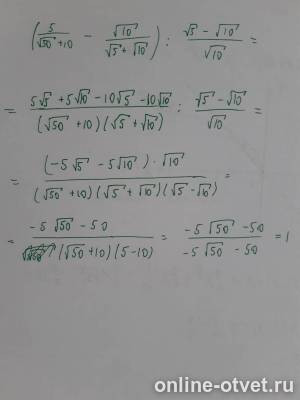 (5/(√50 + 10) − √10/(√5 + √10)) : (√5 − √10)/√10 =
= (5√5 + 5√10 − 10√5 − 10√10)/((√50 + 10)(√5 + √10)) : (√5 − √10)/√10 =
= ((−5√5 − 5√10) · √10)/((√50 + 10)(√5 + √10)(√5 − √10)) =
= (−5√50 − 50)/((√50 + 10)(5 − 10)) = (−5√50 − 50)/(−5√50 − 50) = 1
online-otvet.ru